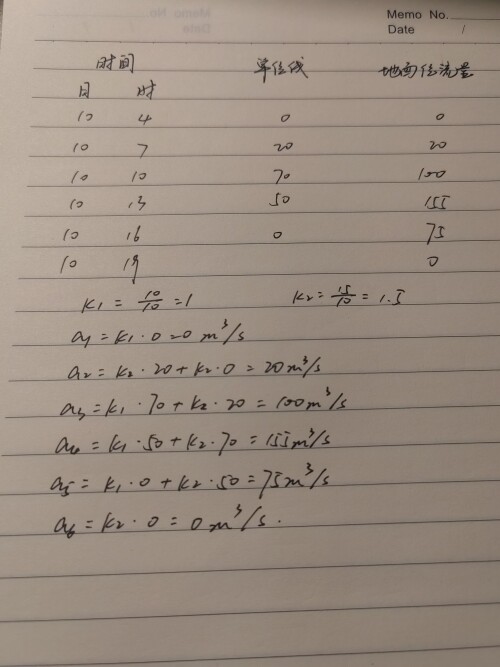 Memo No.
Date /
时间 单位线 地面径流量
日 时
10 4 0 0
10 7 20 20
10 10 70 100
10 13 50 155
10 16 0 75
10 19 0
K1 = 10/10 = 1 K2 = 15/10 = 1.5
a1 = K1 · 0 = 0 m³/s
a2 = K2 · 20 + K2 · 0 = 20m³/s
a3 = K1 · 70 + K2 · 20 = 100m³/s
a4 = K1 · 50 + K2 · 70 = 155m³/s
a5 = K1 · 0 + K2 · 50 = 75m³/s
a6 = K2 · 0 = 0 m³/s.